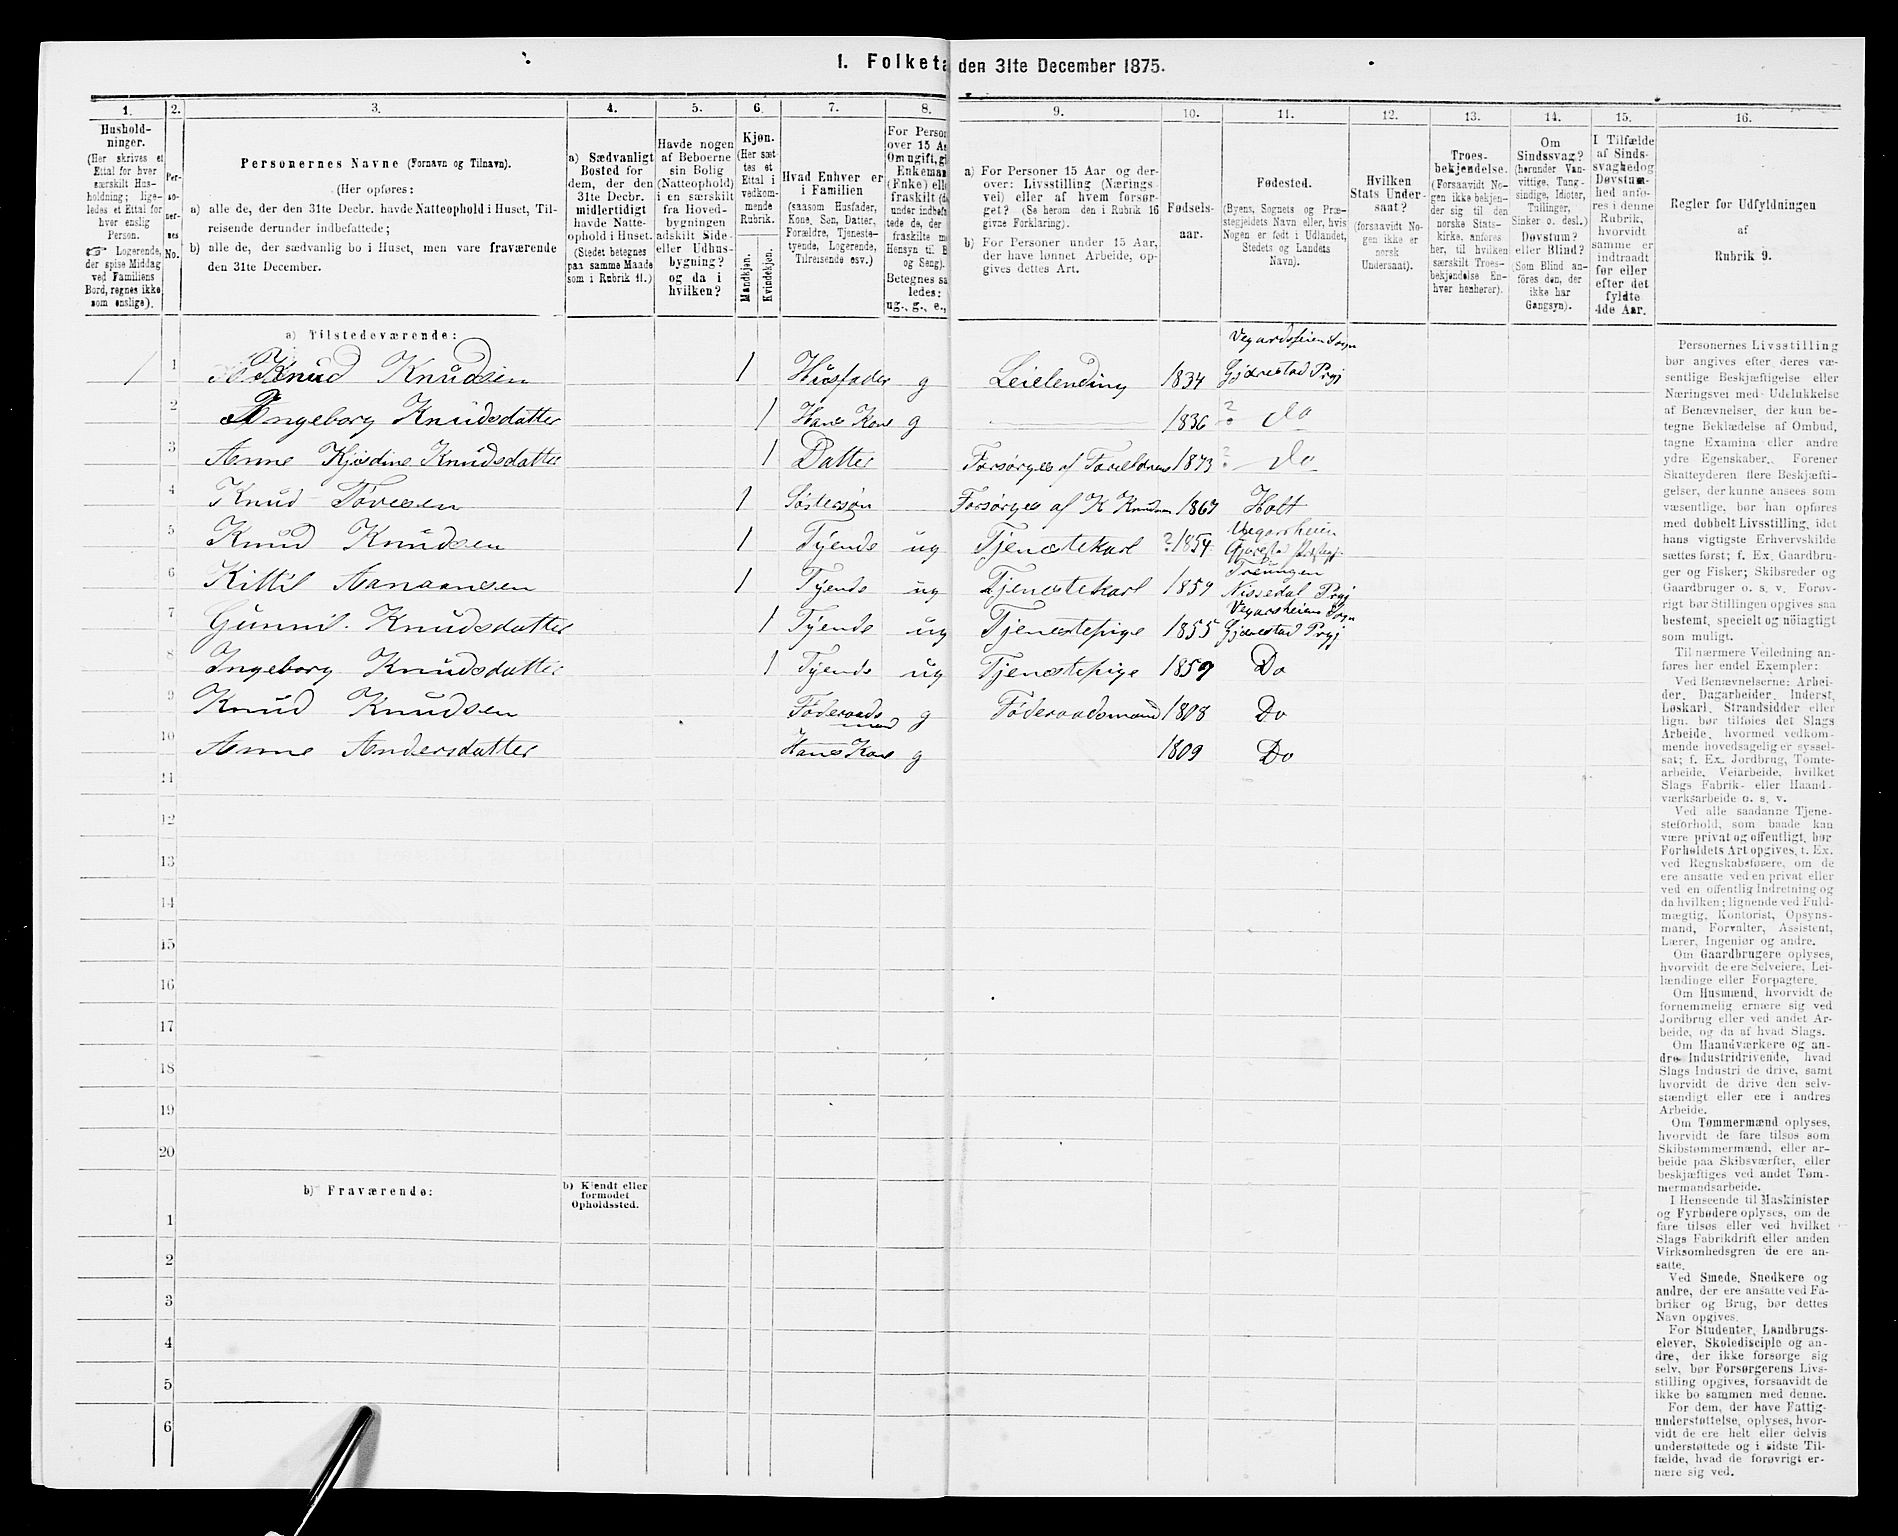 1. Folketa den 31te December 1875.
1. 2. 3. 4. 5. 6. 7. 8. 9. 10. 11. 12. 13. 14. 15. 16.
Hushold-
ninger.
(Her skrives et
Ettal for hver
særskilt Hus-
holdning; lige-
ledes et Ettal for
hver enslig
Person.
☞ Logerende,
der spise Middag
ved Familiens
Bord, regnes ikke
som enslige).
Per-
so-
ner-
nes
No.
Personernes Navne (Fornavn og Tilnavn).
(Her opføres:
a) alle de, der den 31te Decbr. havde Natteophold i Huset, Til-
reisende derunder indbefattede;
b) alle de, der sædvanlig bo i Huset, men vare fraværende
den 31te December.
a) Sædvanligt
Bosted for
dem, der den
31te Decbr.
midlertidigt
havde Natte-
ophold i Huset.
(Stedet betegnes
paa samme Maade
som i Rubrik 11.)
Havde nogen
af Beboerne
sin Bolig
(Natteophold)
i en særskilt
fra Hoved-
bygningen
adskilt Side-
eller Udhus-
bygning?
og da i
hvilken?
Kjøn.
(Her sæt
tes et
Ettal i
vedkom-
mende
Rubrik.
Mandkjøn.
Kvindekjøn.
Hvad Enhver er
i Familien
(saasom Husfader,
Kone, Søn, Datter,
Forældre, Tjeneste-
tyende, Logerende,
Tilreisende osv.)
For Person
over 15 Aa
Om ugift, gi
Enkeman
(Enke) elle
fraskilt (d
under indbef
tede de, der
fraskilte m
Hensyn til B
og Seng).
Betegnes sa
ledes:
ug., g., e.,
a) For Personer 15 Aar og der-
over: Livsstilling (Nærings-
vei) eller af hvem forsør-
get? (Se herom den i Rubrik 16
givne Forklaring).
b) For Personer under 15 Aar,
der have lønnet Arbeide, op-
gives dettes Art.
Fødsels-
aar.
Fødested.
(Byens, Sognets og Præ-
stegjeldets Navn eller, hvis
Nogen er født i Udlandet,
Stedets og Landets
Navn).
Hvilken
Stats Under-
saat?
(forsaavidt No-
gen ikke er
norsk
Undersaat).
Troes-
bekjendelse.
(Forsaavidt No-
gen ikke bekjen-
der sig til den
norske Stats-
kirke, anføres
her, til hvilken
særskilt Troes-
bekjendelse En-
hver henhører).
Om
Sindssvag?
(herunder Van-
vittige, Tung-
sindige, Idioter,
Tullinger,
Sinker o. desl.)
Døvstum?
eller Blind?
(Som Blind an-
føres den, der
ikke har
Gangsyn).
I Tilfælde
af Sinds-
svaghed og
Døvstum-
hed anfø-
res i denne
Rubrik,
hvorvidt
samme er
indtraadt
før eller
efter det
fyldte
4de Aar.
Regler for Udfyldningen
af
Rubrik 9.
a) Tilstedeværende:
Vegardsheien Sogn
1 1 Knud Knudsen 1 Husfader g Leilending 1834 Gjerestad Prgj
2 Ingeborg Knudsdatter 1 Hans Kone g 1836 ? do
3 Anne Kjsdine Knudsdatter 1 Datter Forsørges af Forældrene 1873 ? Do
4 Knud Tovesen 1 Søstersøn Forsørges af K Knudsen 1867 Holt
5 Knud Knudsen 1 Tyende ug Tjenestekarl ? 1854 Vegarsheien
Treungen
6 Kittil Aanaansen 1 Tyende ug Tjenestekarl 1859 Nissedal Prgj
Vegarsheiens Sogn
7 Gunnil. Knudsdatter 1 Tyende ug Tjenestepige 1855 Gjerestad Prgj
8 Ingeborg Knudsdatter 1 Tyende ug Tjenestepige 1859 Do
9 Knud Knudsen Føderaads
mand g Føderaadsmand 1808 Do
10 Anne Andersdatter Hans Kone g 1809 Do
11
12
13
14
15
16
17
18
19
20
b) Fraværende:
b) Kjendt eller
formodet
Opholdssted.
1
2
3
4
5
6
Personernes Livsstilling
bør angives efter deres væ-
sentlige Beskjæftigelse eller
Næringsvei med Udelukkelse
af Benævnelser, der kun be-
tegne Beklædelse af Ombud,
tagne Examina eller andre
ydre Egenskaber. Forener
Skatteyderen flere Beskjæfti-
gelser, der kunne ansees som
væsentlige, bør han opføres
med dobbelt Livsstilling, idet
hans vigtigste Erhvervskilde
sættes først; f. Ex. Gaardbru-
ger og Fisker; Skibsreder og
Gaardbruger o. s. v. Forøv-
rigt bør Stillingen opgives saa
bestemt, specielt og nøiagtigt
som muligt.
Til nærmere Veiledning an-
føres her endel Exempler:
Ved Benævnelserne: Arbei-
der, Dagarbeider, Inderst,
Løskarl, Strandsidder eller
lign. bør tilføies det Slags
Arbeide, hvormed vedkom-
mende hovedsagelig er syssel-
sat; f. Ex. Jordbrug, Tomte-
arbeide, Veiarbeide, hvilket
Slags Fabrik- eller Haand-
værksarbeide o. s. v.
Ved alle saadanne Tjene-
steforhold, som baade kan
være privat og offentligt, bør
Forholdets Art opgives, t. Ex.
ved Regnskabsførere, om de
ere ansatte ved en privat eller
ved en offentlig Indretning og
da hvilken; lignende ved Fuld-
mægtig, Kontorist, Opsyns-
mand, Forvalter, Assistent,
Lærer, Ingeniør og andre.
Om Gaardbrugere oplyses,
hvorvidt de ere Selveiere, Lei-
lændinge eller Forpagtere.
Om Husmænd, hvorvidt de
fornemmelig ernære sig ved
Jordbrug eller ved andet Ar-
beide, og da af hvad Slags.
Om Haandværkere og an-
dre Industridrivende, hvad
Slags Industri de drive, samt
hvorvidt de drive den selv-
stændigt eller ere i andres
Arbeide.
Om Tømmermænd oplyses,
hvorvidt de fare tilsøs som
Skibstømmermænd, eller ar-
beide paa Skibsværfter, eller
beskjæftiges ved andet Tøm-
mermandsarbeide.
I Henseende til Maskinister
og Fyrbødere oplyses, om de
fare tilsøs eller ved hvilket
Slags Fabrikdrift eller anden
Virksomhedsgren de ere an-
satte.
Ved Smede, Snedkere og
andre, der ere ansatte ved Fa-
briker og Brug, bør dettes
Navn opgives.
For Studenter, Landbrugs-
elever, Skoledisciple og an-
dre, der ikke forsørge sig
selv, bør Forsørgerens Livs-
stilling opgives, forsaavidt de
ikke bo sammen med denne.
For dem, der have Fattig-
understøttelse, oplyses, hvor-
vidt de ere helt eller delvis
understøttede og i sidste Til-
fælde, hvad de forøvrigt er-
nære sig ved.